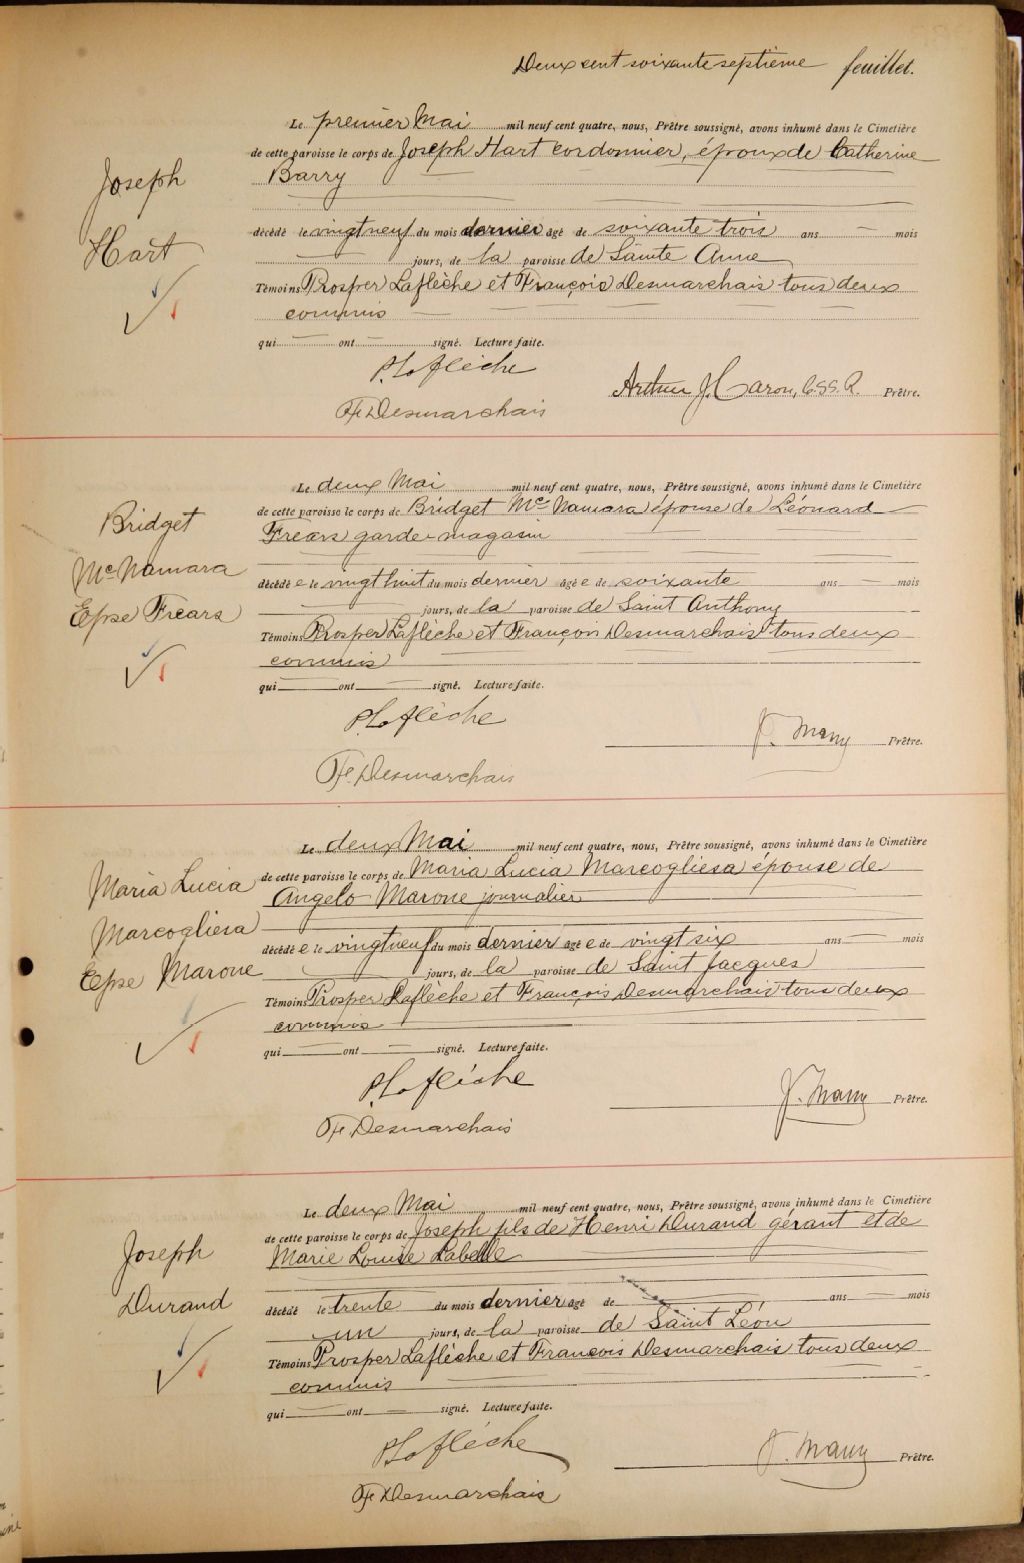 Deux cent soixante septième feuillet.
Le premier Mai mil neuf cent quatre, nous, Prêtre soussigné, avons inhumé dans le Cimetière
de cette paroisse le corps de Joseph Hart cordonnier, époux de Catherine
Barry
Joseph
Hart
décédé le vingt neuf du mois dernier âgé de soixante trois ans — mois
— jours, de la paroisse de Sainte Anne
Témoins Prosper Laflèche et François Desmarchais tous deux
commis
qui — ont — signé. Lecture faite.
P. Laflèche
Arthur J. Caron, C.SS.R. Prêtre.
Fr Desmarchais
Le deux Mai mil neuf cent quatre, nous, Prêtre soussigné, avons inhumé dans le Cimetière
de cette paroisse le corps de Bridget McNamara épouse de Léonard
Frears garde-magasin
Bridget
McNamara
Epse Frears
décédée le vingt huit du mois dernier âgée de soixante ans — mois
— jours, de la paroisse de Saint Anthony
Témoins Prosper Laflèche et François Desmarchais tous deux
commis
qui — ont — signé. Lecture faite.
P. Laflèche
Prêtre.
Fr. Desmarchais
Le deux Mai mil neuf cent quatre, nous, Prêtre soussigné, avons inhumé dans le Cimetière
de cette paroisse le corps de Maria Lucia Marcogliesa épouse de
Angelo Marone journalier
Maria Lucia
Marcogliesa
Epse Marone
décédée le vingt neuf du mois dernier âgée de vingt six ans — mois
— jours, de la paroisse de Saint Jacques
Témoins Prosper Laflèche et François Desmarchais tous deux
commis
qui — ont — signé. Lecture faite.
P. Laflèche
Prêtre.
Fr Desmarchais
Le deux Mai mil neuf cent quatre, nous, Prêtre soussigné, avons inhumé dans le Cimetière
de cette paroisse le corps de Joseph fils de Henri Durand gérant et de
Marie Louise Labelle
Joseph
Durand
décédé le trente du mois dernier âgé de — ans — mois
un jours, de la paroisse de Saint Léon
Témoins Prosper Laflèche et François Desmarchais tous deux
commis
qui — ont — signé. Lecture faite.
P. Laflèche
Prêtre.
Fr Desmarchais